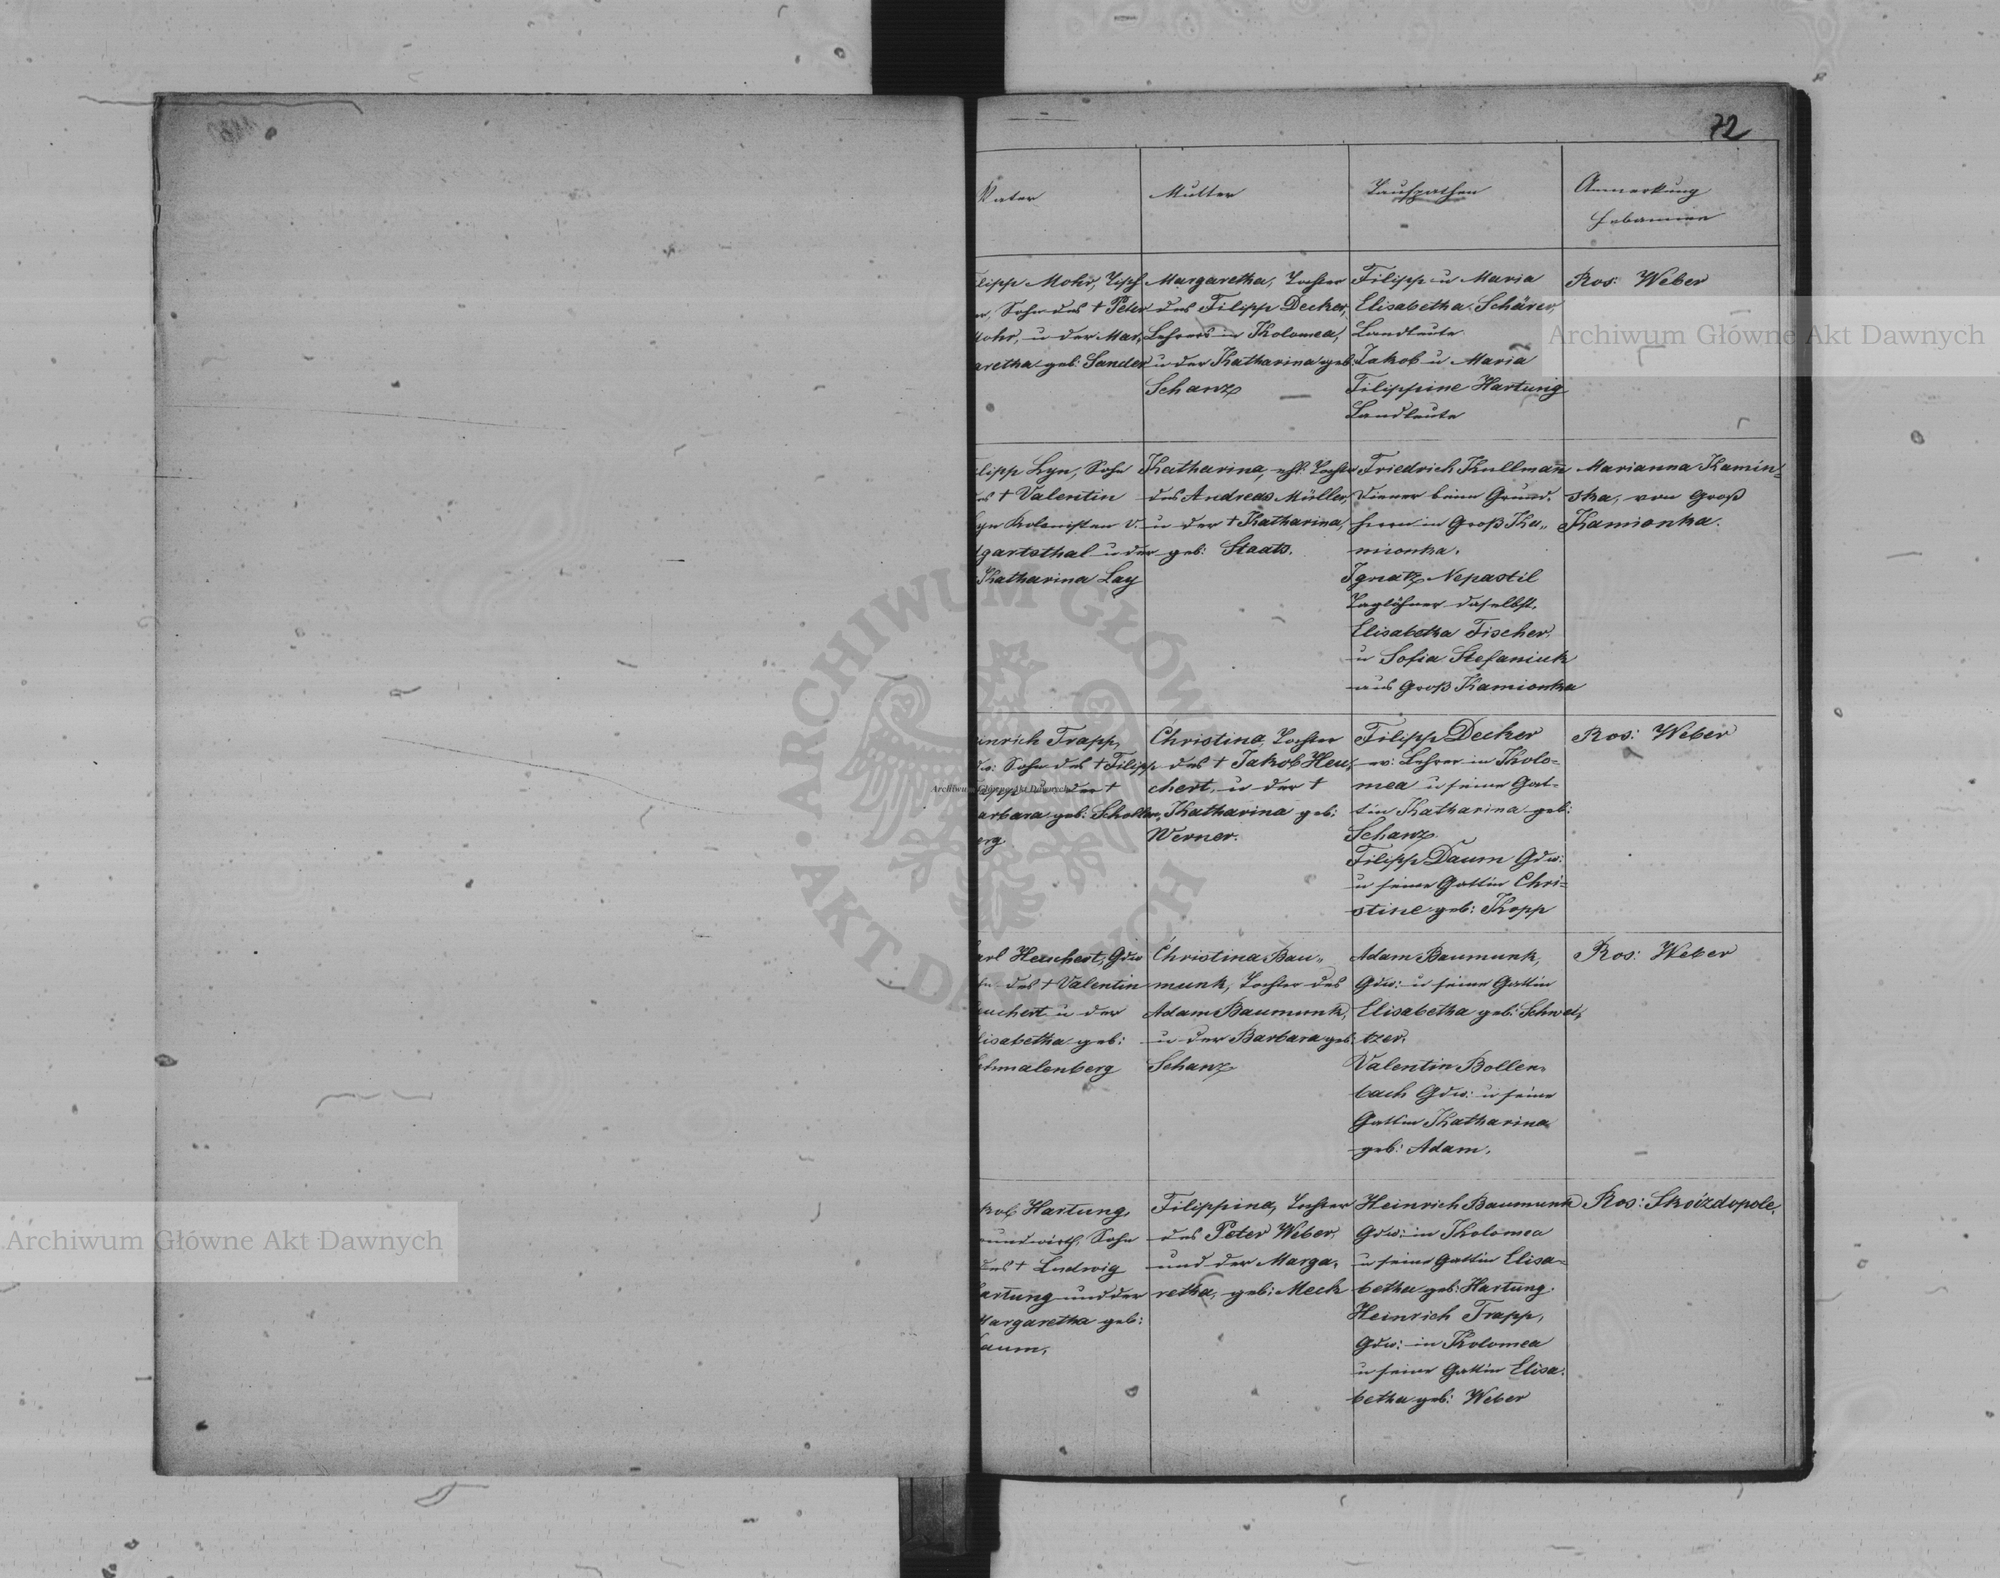 72
Vater
Mutter
Taufpathen
Anmerkung
Hebamme
lipp Mohr, Tisch
Sohn des † Peter
ohr, u der Mar,
aretha geb: Sander
Margaretha, Tochter
des Filipp Decker,
Lehrers in Kolomea,
u der Katharina geb:
Schanz
Filipp u Maria
Elisabetha Schärer,
Landleute
Jakob u Maria
Filippine Hartung
Landleute
Ros: Weber
lipp Lyn, Sohn
des † Valentin
yn Kolonisten v.
gartsthal u der
Katharina Lay
Katharina, ehl. Tochter
des Andreas Müller,
u der † Katharina,
geb: Staats.
Friedrich Kullmann
Diener beim Grund-
herrn in Groß Ka„
mionka.
Ignatz Nepastil
Taglöhner daselbst.
Elisabetha Fischer,
u Sofia Stefaniuk
aus Groß Kamionka
Marianna Kamin-
ska, von Groß
Kamionka.
inrich Trapp,
Sohn des † Filipp
app u der †
arbara geb: Schollen„
erg
Christina, Tochter
des † Jakob Heu„
chert, u der †
Katharina geb:
Werner.
Filipp Decker
ev: Lehrer in Kolo-
mea u seine Gat-
tin Katharina geb:
Schanz
Filipp Daum Gdw:
u seine Gattin Chri-
stine geb: Kopp
Ros: Weber
arl Heuchert, Gdw
des † Valentin
uchert u der
lisabetha geb:
chmalenberg
Christina Bau„
munk, Tochter des
Adam Baumunk,
u der Barbara geb:
Schanz
Adam Baumunk,
Gdw: u seine Gattin
Elisabetha geb: Schwei„
tzer.
Valentin Bollen-
bach Gdw: u seine
Gattin Katharina
geb: Adam.
Ros: Weber
kob Hartung,
rundwirth, Sohn
des † Ludwig
artung und der
Margaretha geb:
aum.
Filippina, Tochter
des Peter Weber,
und der Marga„
retha, geb: Meck
Heinrich Baumunk
Gdw: in Kolomea
u seine Gattin Elisa-
betha geb: Hartung.
Heinrich Trapp,
Gdw: in Kolomea
u seine Gattin Elisa-
betha geb: Weber
Ros: Skoizdopole.
Archiwum Główne Akt Dawnych
Archiwum Główne Akt Dawnych
Archiwum Główne Akt Dawnych
ARCHIWUM GŁÓWNE
AKT DAWNYCH